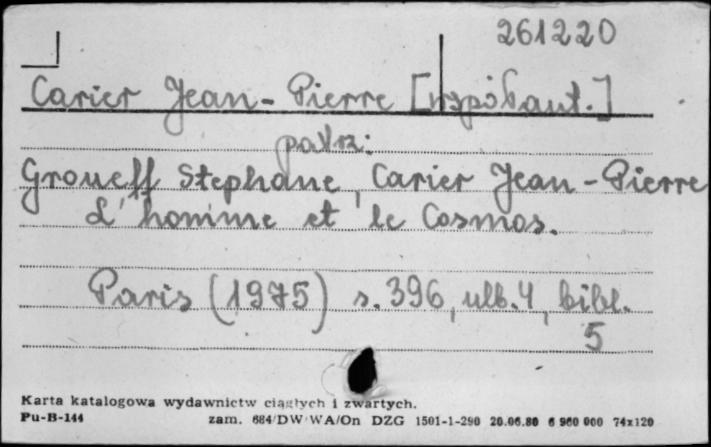 261220
Carier Jean-Pierre [współaut.]
patrz:
Groueff Stephane, Carier Jean-Pierre
L'homme et le Cosmos.
Paris (1975) s. 396, ulb. 4, bibl.
5
Karta katalogowa wydawnictw ciągłych i zwartych.
Pu-B-144 zam. 684/DW WA/On DZG 1501-1-290 20.06.80 6 960 000 74x120